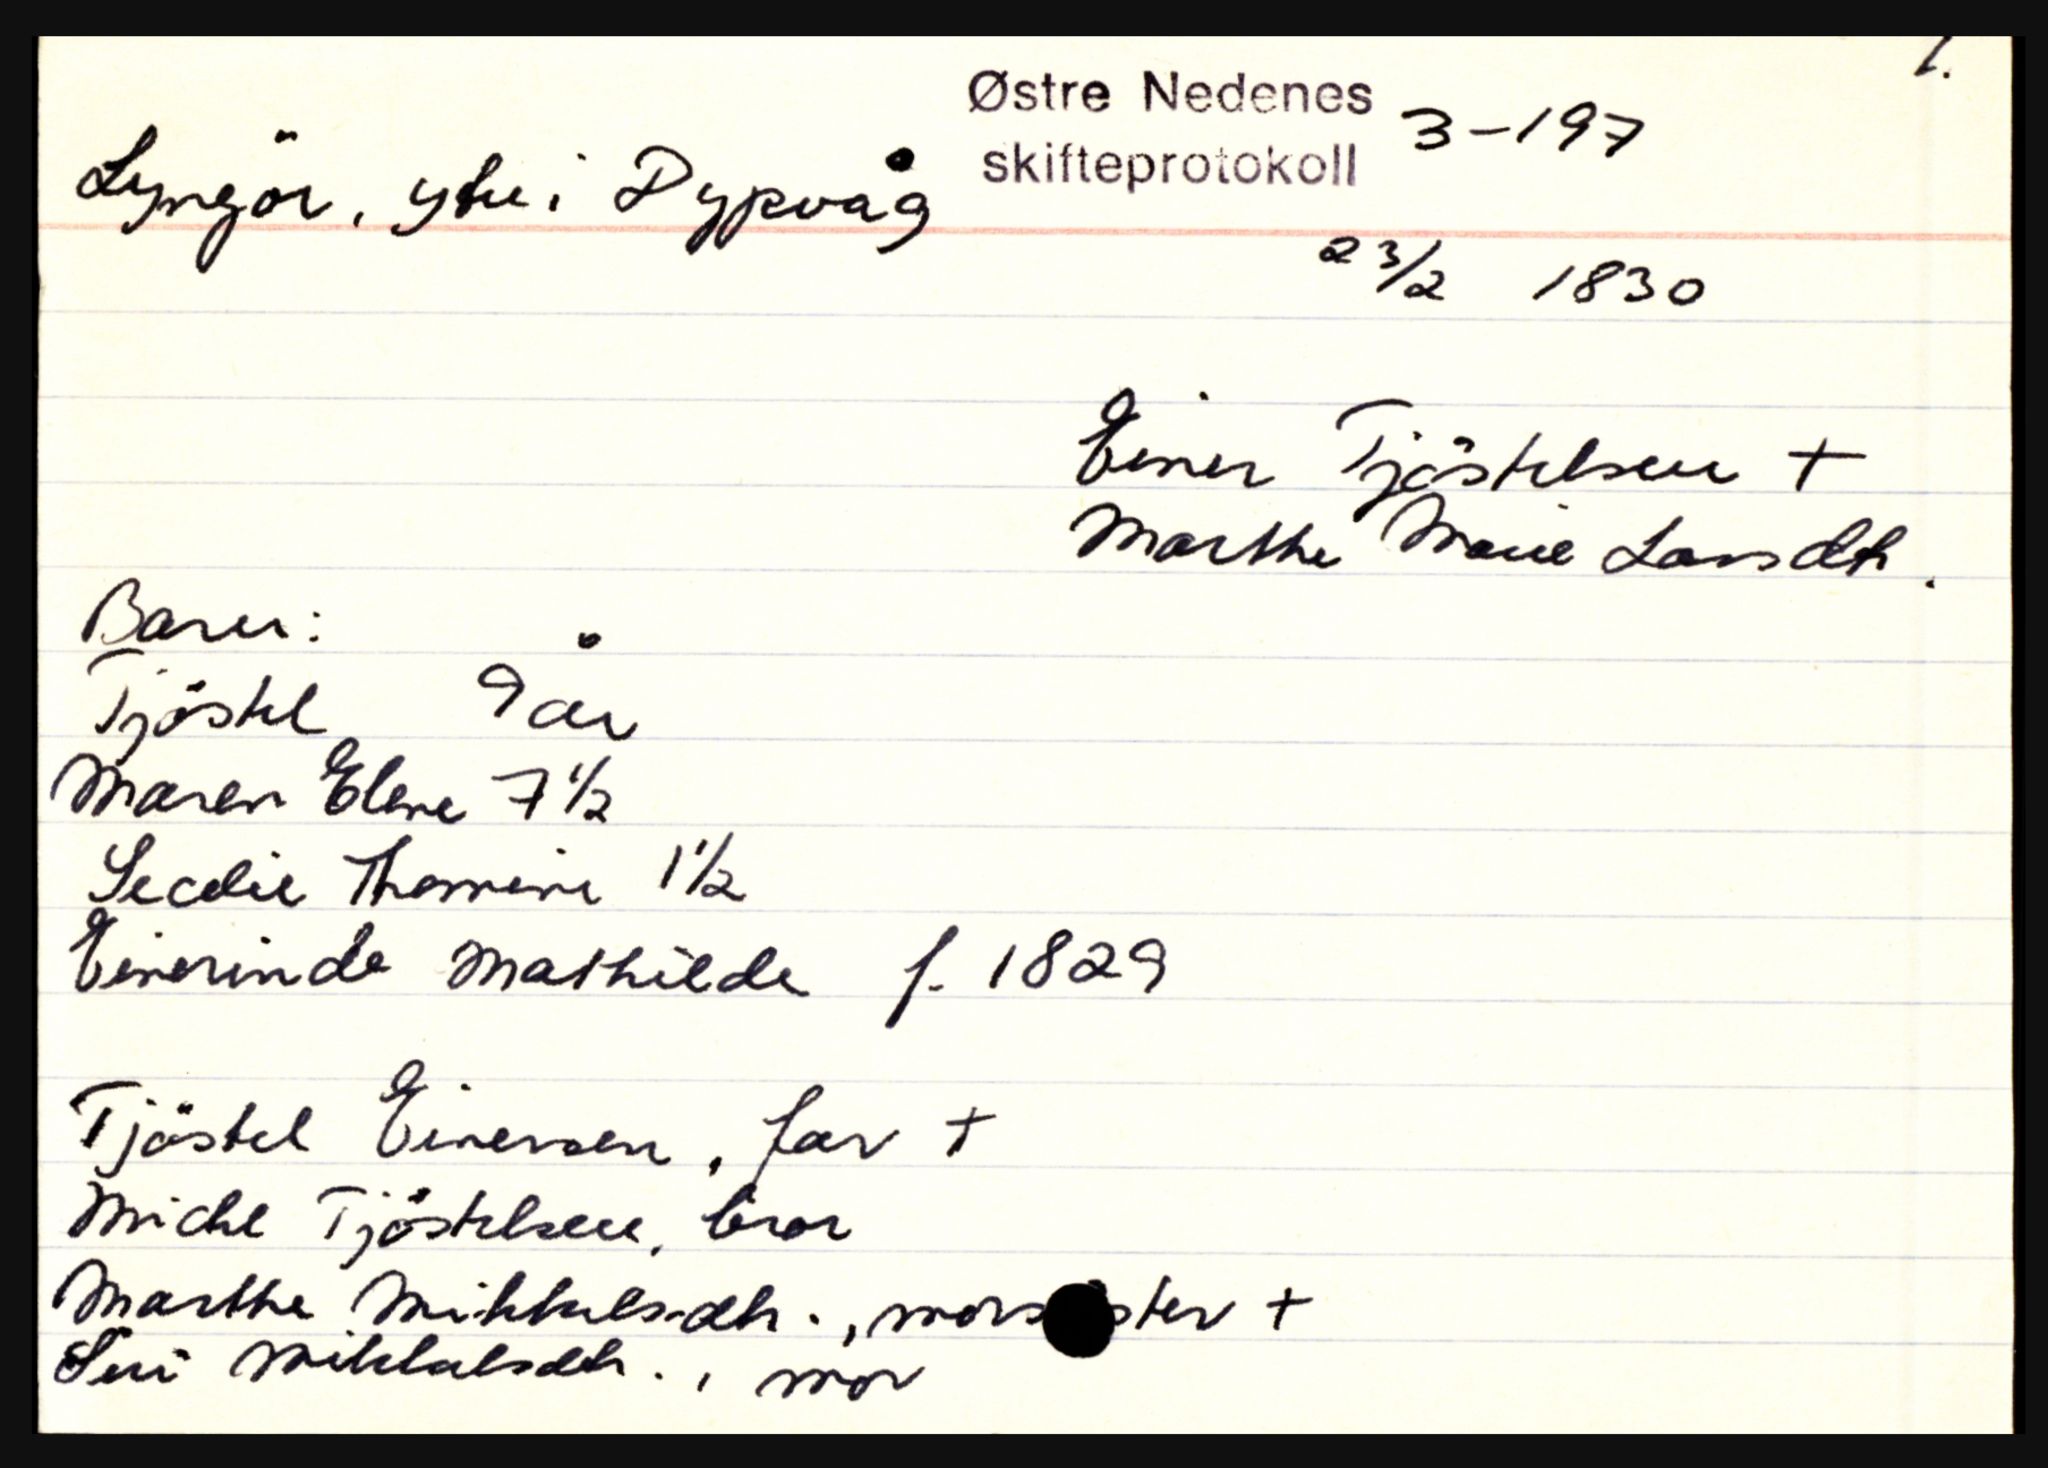 1.
Østre Nedenes
skifteprotokoll 3-197
Lyngör, ytre i Dypvåg
23/2 1830
Einer Tjöstelsen +
Marthe Marie Larsdtr.
Barn:
Tjöstel 9 år
Maren Elene 7 1/2
Secelie Thomine 1 1/2
Einerinde Mathilde f. 1829
Tjöstel Einersen, far +
Michel Tjöstelsen, bror
Marthe Mikkelsdtr., morsöster +
Siri Mikkelsdtr., mor